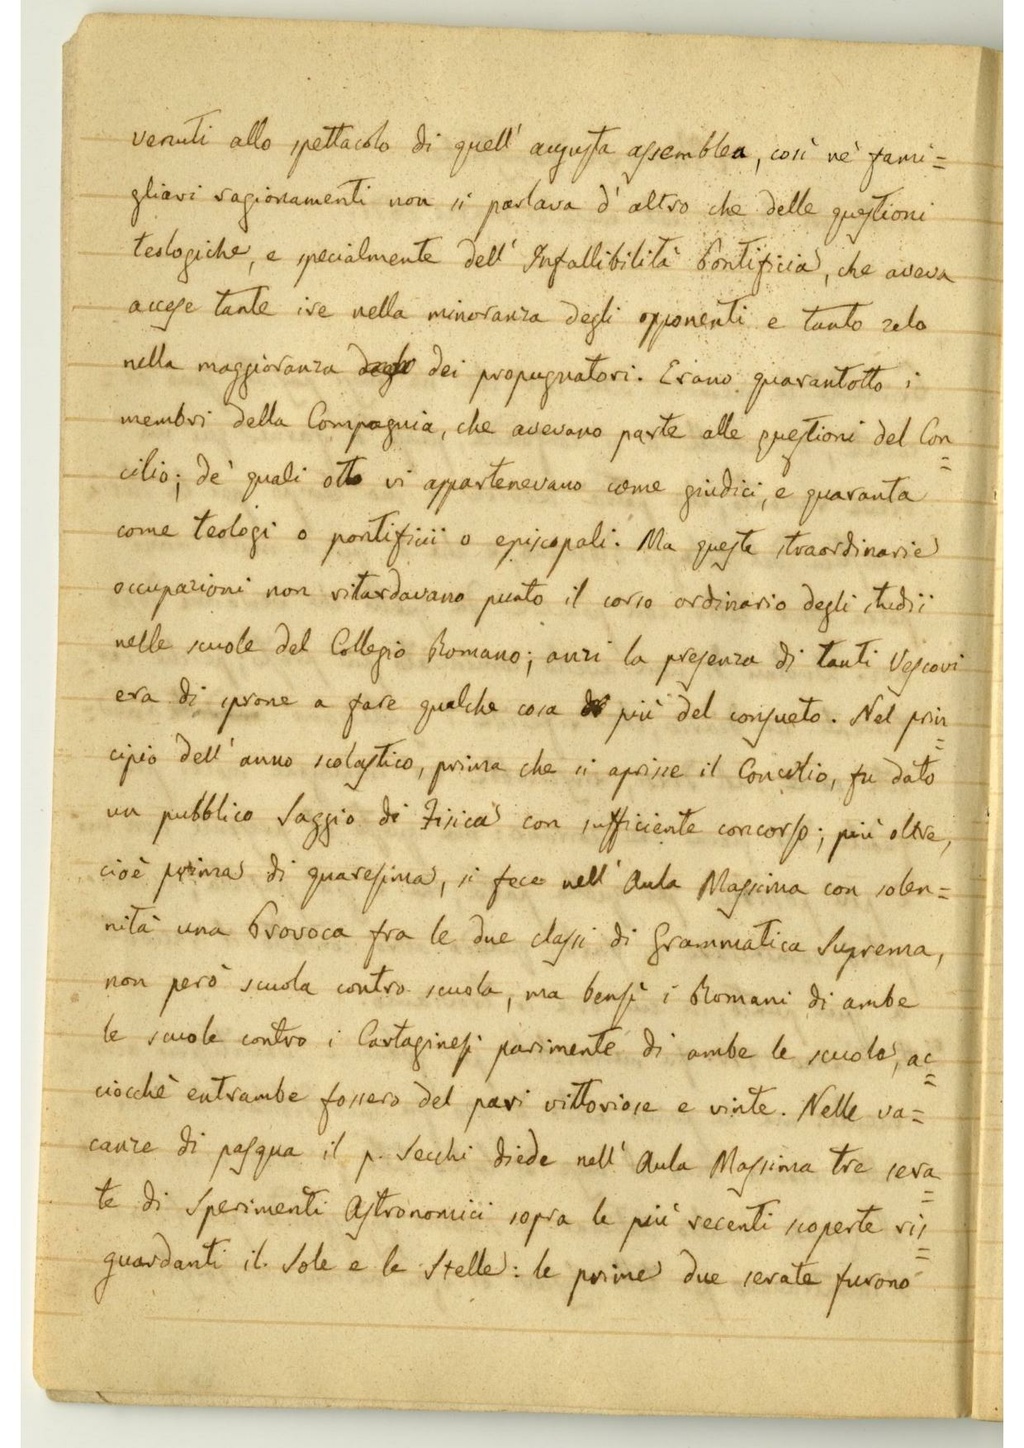 venuti allo spettacolo di quell' augusta assemblea, così ne' fami=
gliari ragionamenti non si parlava d' altro che delle questioni
teologiche, e specialmente dell' Infallibilità Pontificia, che aveva
accese tante ire nella minoranza degli opponenti e tanto zelo
nella maggioranza dei propugnatori. Erano quarantotto i
membri della Compagnia, che avevano parte alle questioni del Con=
cilio; de' quali otto vi appartenevano come giudici, e quaranta
come teologi o pontificii o episcopali. Ma queste straordinarie
occupazioni non ritardavano punto il corso ordinario degli studii
nelle scuole del Collegio Romano; anzi la presenza di tanti Vescovi
era di sprone a fare qualche cosa di più del consueto. Nel prin=
cipio dell' anno scolastico, prima che si aprisse il Concilio, fu dato
un pubblico Saggio di Fisica con sufficiente concorso; più oltre,
cioè prima di quaresima, si fece nell' Aula Massima con solen=
nità una Provoca fra le due classi di Grammatica Suprema,
non però scuola contro scuola, ma bensì i Romani di ambe
le scuole contro i Cartaginesi parimente di ambe le scuole, ac=
ciocchè entrambe fossero del pari vittoriose e vinte. Nelle va=
canze di pasqua il p. Secchi diede nell' Aula Massima tre sera=
te di Sperimenti Astronomici sopra le più recenti scoperte ris=
guardanti il Sole e le Stelle: le prime due serate furono